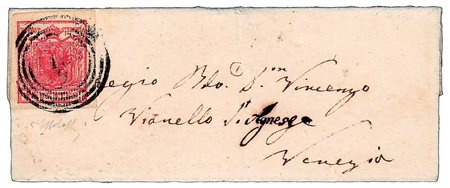 Regio Rdo. D.n Vincenzo
Vianello S.t Agnese
Venezia